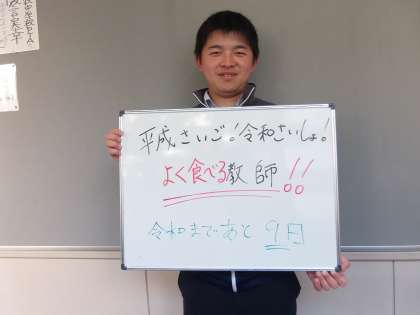 平成さいご!令和さいしょ!
よく食べる教師!!
令和まであと 9日